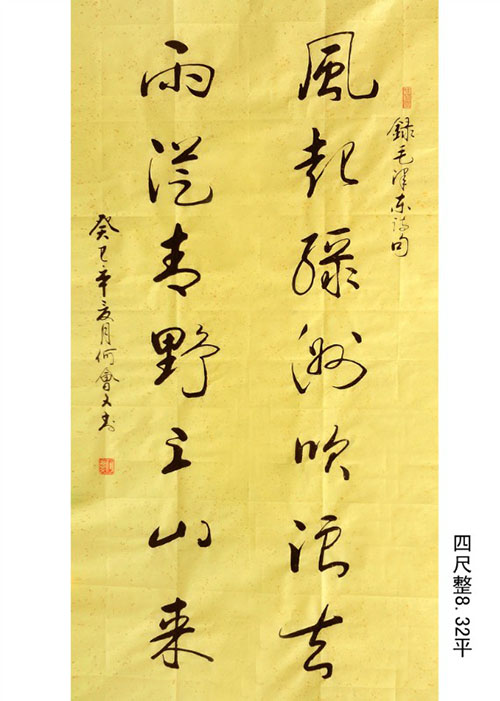 録毛澤东诗句
風起绿洲吹浪去
雨從青野上山来
癸巳年夏月何會文书
四尺整8.32平